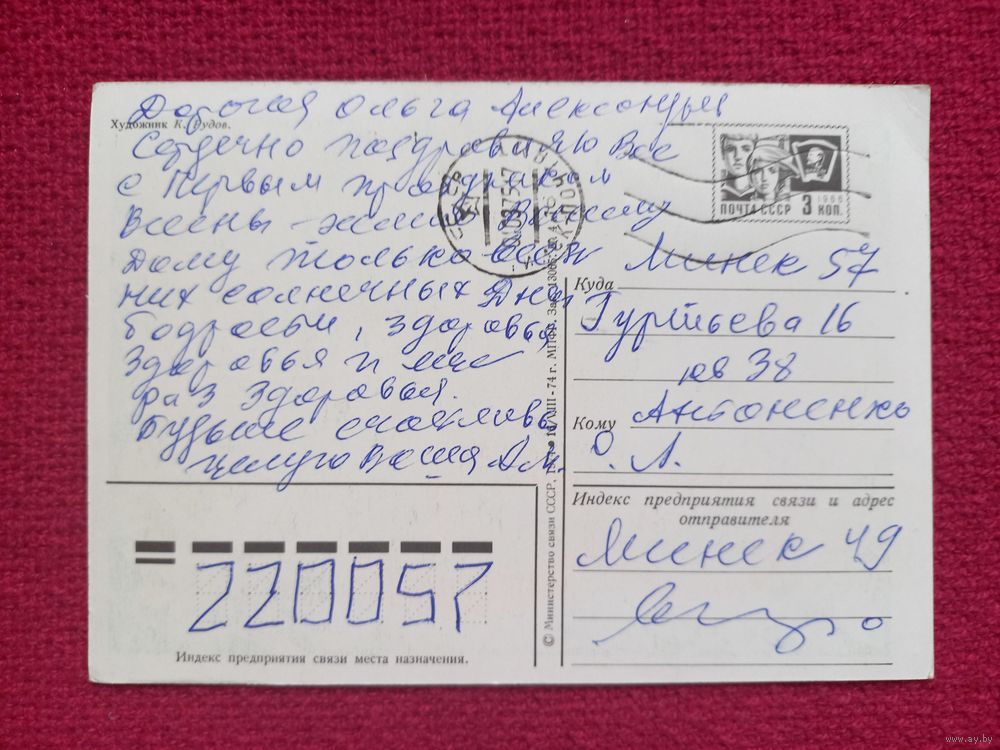 Дорогая Ольга Александр
Художник К. Рудов.
Сердечно поздравляю Вас
с Первым праздником
Весны желаю Вашему
Дому только весен
них солнечных Дней
бодрости, здоровья,
Здоровья и еще
раз здоровья.
Будьте счастливы
целую Ваша А.М.
ПОЧТА СССР 3 КОП.
1966
Куда Минск 57
Гуртьева 16
кв 38
Кому Антоненко
О. А.
Индекс предприятия связи и адрес
отправителя
Минск 49
220057
Индекс предприятия связи места назначения.
© Министерство связи СССР,
www.ay.by